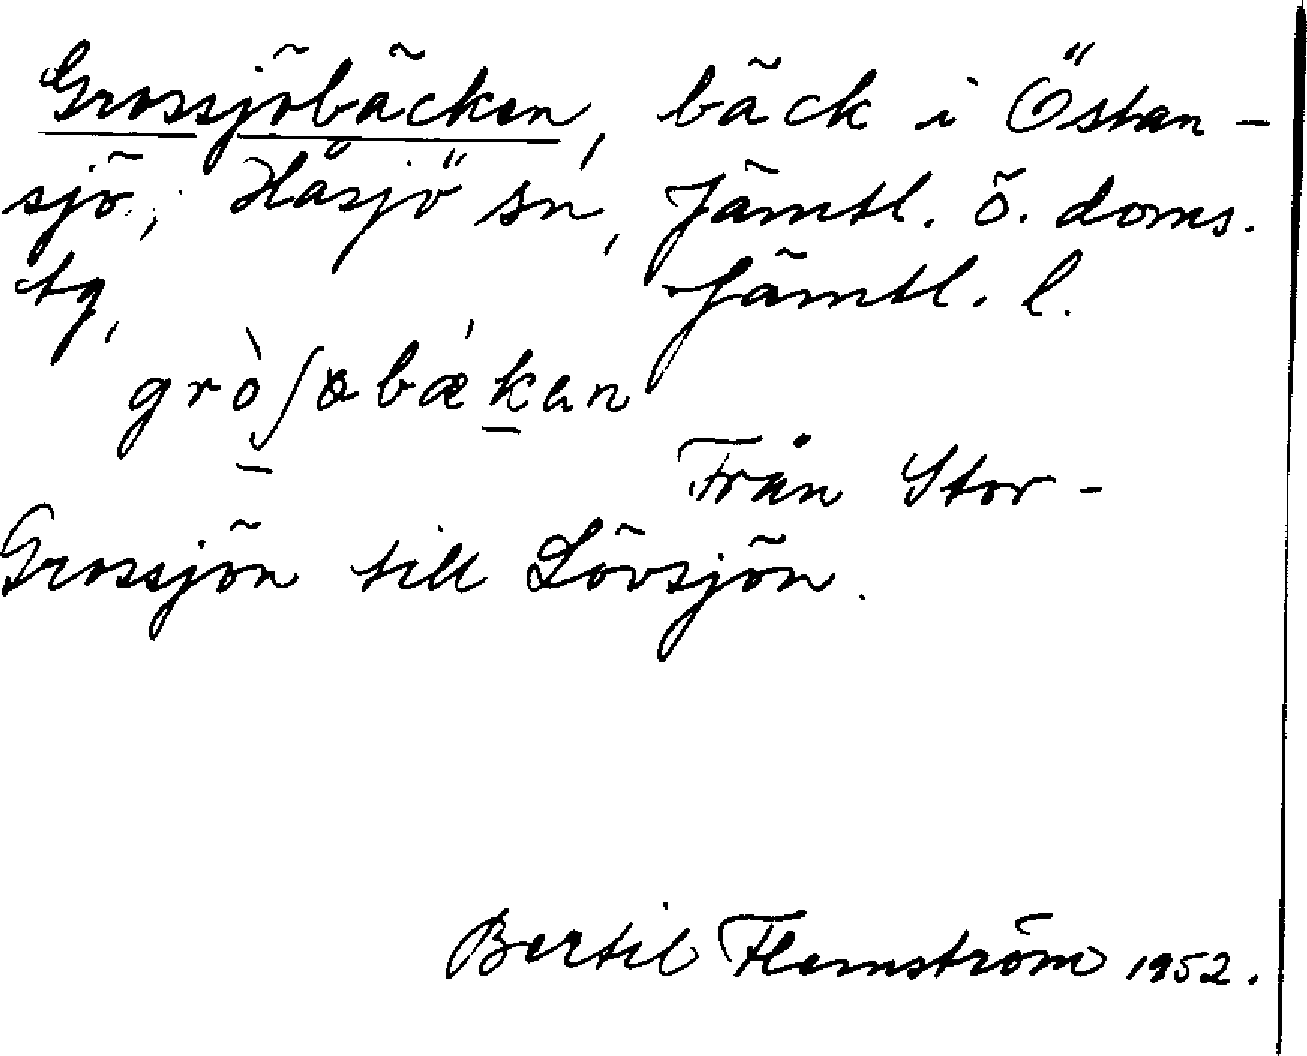 Grossjöbäcken, bäck i Östan-
sjö, Håsjö sn, Jämtl. ö. doms.
tg, Jämtl. l.
gròʃɷbǽken
Från Stor-
Grossjön till Lövsjön.
Bertil Flemström 1952.